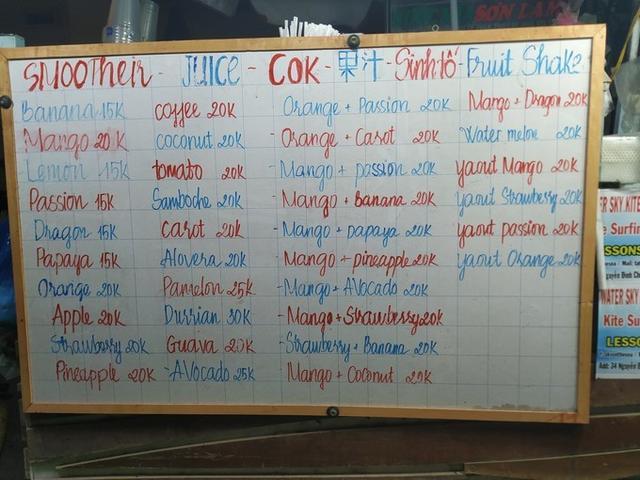 SƠN LAM
SMOOTheir - JUICE - COK - 果汁 - Sinh tố - Fruit Shake
Banana 15K
Mango 20K
Lemon 15K
Passion 15K
Dragon 15K
Papaya 15K
Orange 20K
Apple 20K
Strawberry 20K
Pineapple 20K
coffee 20K
coconut 20K
tomato 20K
Samboche 20K
Carot 20K
Alovera 20K
Pamelon 25K
Durrian 30K
Guava 20K
- AVocado 25K
Orange + Passion 20K
- Orange + Carot 20K
- Mango + passion 20K
- Mango + Banana 20K
- Mango + papaya 20K
- Mango + pineapple 20K
- Mango + AVocado 20K
- Mango + Strawberry 20K
- Strawberry + Banana 20K
- Mango + Coconut 20K
Mango + Dragon 20K
Water melon 20K
yaout Mango 20K
yaout Strawberry 20K
yaout passion 20K
yaout Orange 20K
ER SKY KITE
e Surfin
SSONS
WATER SKY
Kite Su
LESSO
Add: 24 Nguyễn Đình C